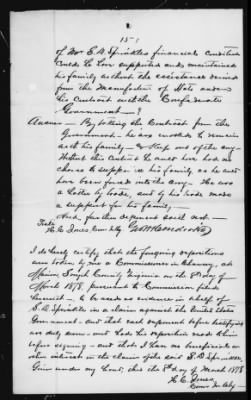 15-
of Mr S. D. Sprinkles financial condition
Could he have supported and maintained
his family without the assistance derived
from the Manufacture of Hats under
his Contract with the Confederate
Government?
Answer - By getting the Contract from the
Government - he was enabled to remain
with his family - & keep out of the army
Without this Contract he could have had no
chance to support his family, as he would
have been forced into the army. He was
a hatter by trade, and by his trade made
a support for his family,
And further deponent saith not -
Teste
H. C. Jones Com in Chy
I do hereby certify that the foregoing depositions
were taken by me a Commissioner in Chancery, at
Marion, Smyth County Virginia on the 8th day of
March 1878, pursuant to Commission filed
herewith - to be used as evidence in behalf of
S. D. Sprinkle in a claim against the United States
Government - and that each deponent before testifying
was duly sworn - and had his deposition read to him
before signing - and that I have no beneficial or
other interest in the claim of the said S. D. Sprinkle,
Given under my hand, this the 8th day of March 1878
H. C. Jones
Comr in Chy